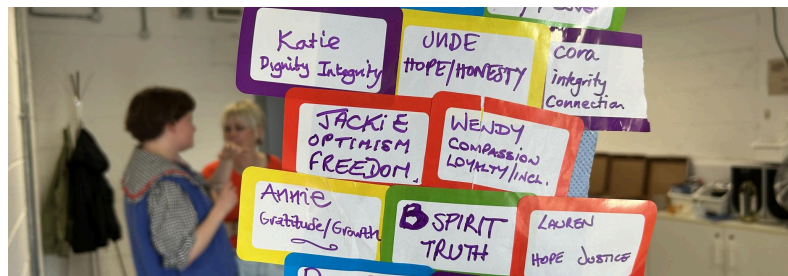 Katie
Dignity Integrity
JUDE
HOPE/HONESTY
Cora
integrity
Connection
JACKIE
OPTIMISM
FREEDOM.
WENDY
COMPASSION
LOYALTY/INCL.
Annie
Gratitude/Growth
B SPIRIT
TRUTH
LAUREN
HOPE JUSTICE